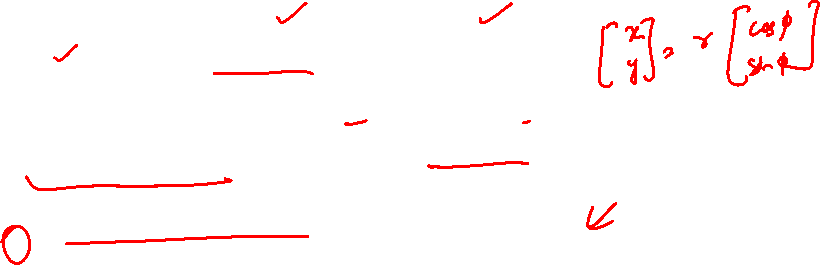 [x y] = r [cosφ sinφ]